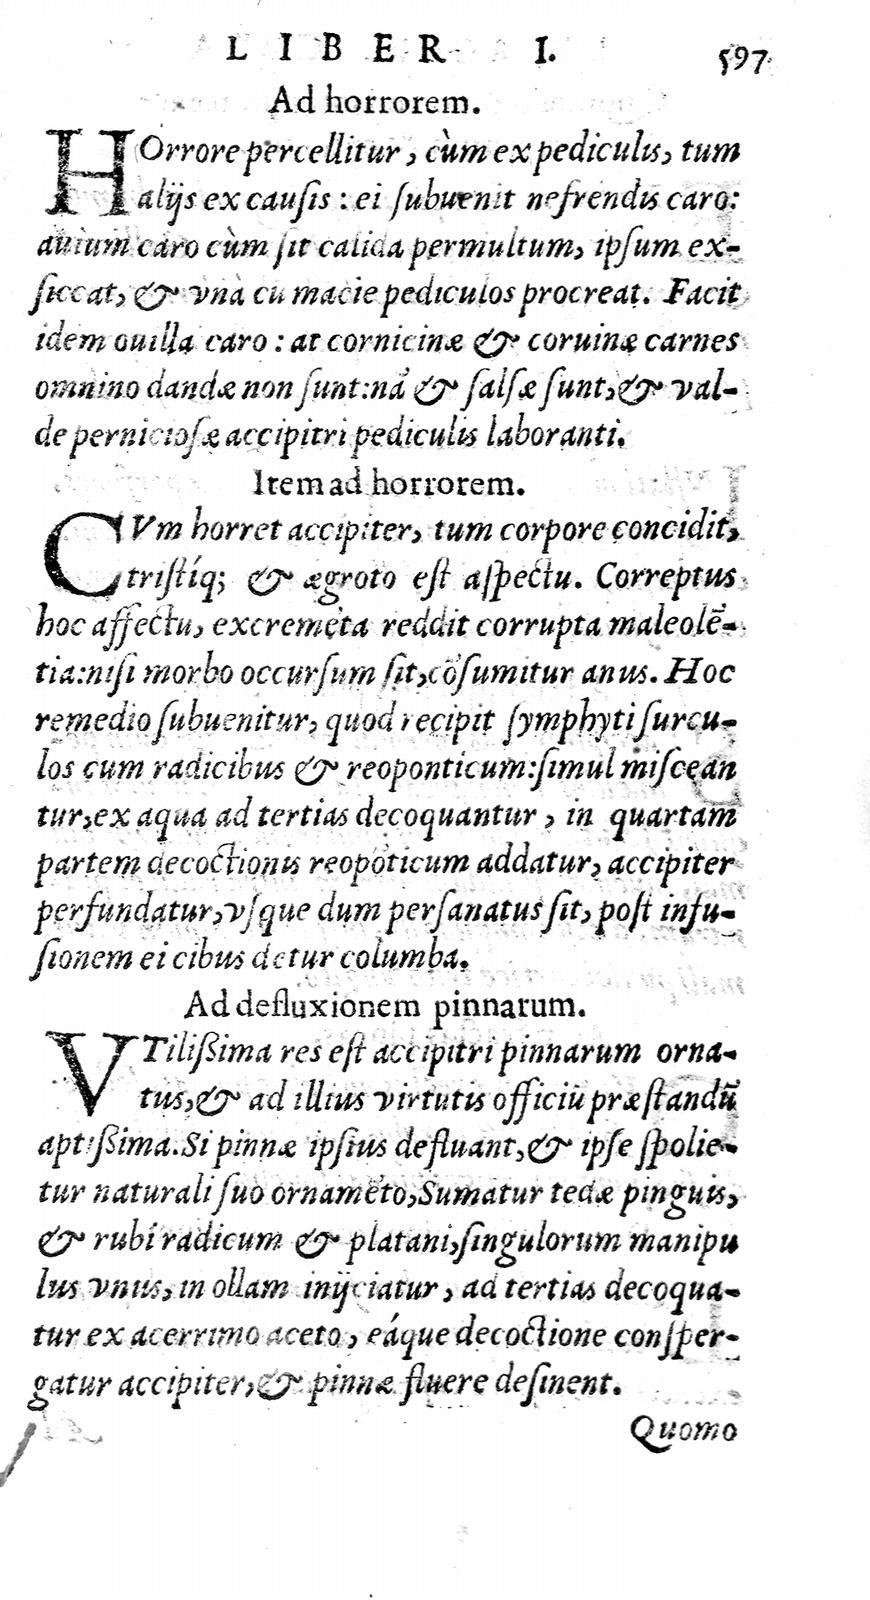 LIBER I. 597
Ad horrorem.
HOrrore percellitur, cùm ex pediculis, tum
alijs ex causis: ei ſubuenit nefrendis caro:
auium caro cùm ſit calida permultum, ipſum ex-
ſiccat, & vnà cū macie pediculos procreat. Facit
idem ouilla caro: at cornicinæ & coruinæ carnes
omnino dandæ non ſunt: nā & ſalſæ ſunt, & val-
de pernicioſæ accipitri pediculis laboranti.
Item ad horrorem.
CVm horret accipiter, tum corpore concidit,
triſtíq; & ægroto eſt aſpectu. Correptus
hoc affectu, excremēta reddit corrupta maleolē-
tia: niſi morbo occurſum ſit, cōſumitur anus. Hoc
remedio ſubuenitur, quod recipit ſymphyti ſurcu-
los cum radicibus & reoponticum: ſimul miſcean
tur, ex aqua ad tertias decoquantur, in quartam
partem decoctionis reopōticum addatur, accipiter
perfundatur, vſque dum perſanatus ſit, poſt infu-
ſionem ei cibus detur columba.
Ad defluxionem pinnarum.
VTiliſſima res eſt accipitri pinnarum orna-
tus, & ad illius virtutis officiū præſtandū
aptiſſima. Si pinnæ ipſius defluant, & ipſe ſpolie-
tur naturali ſuo ornamēto, Sumatur tedæ pinguis,
& rubi radicum & platani, ſingulorum manipu
lus vnus, in ollam inijciatur, ad tertias decoqua-
tur ex acerrimo aceto, eáque decoctione conſper-
gatur accipiter, & pinnæ fluere deſinent.
Quomo